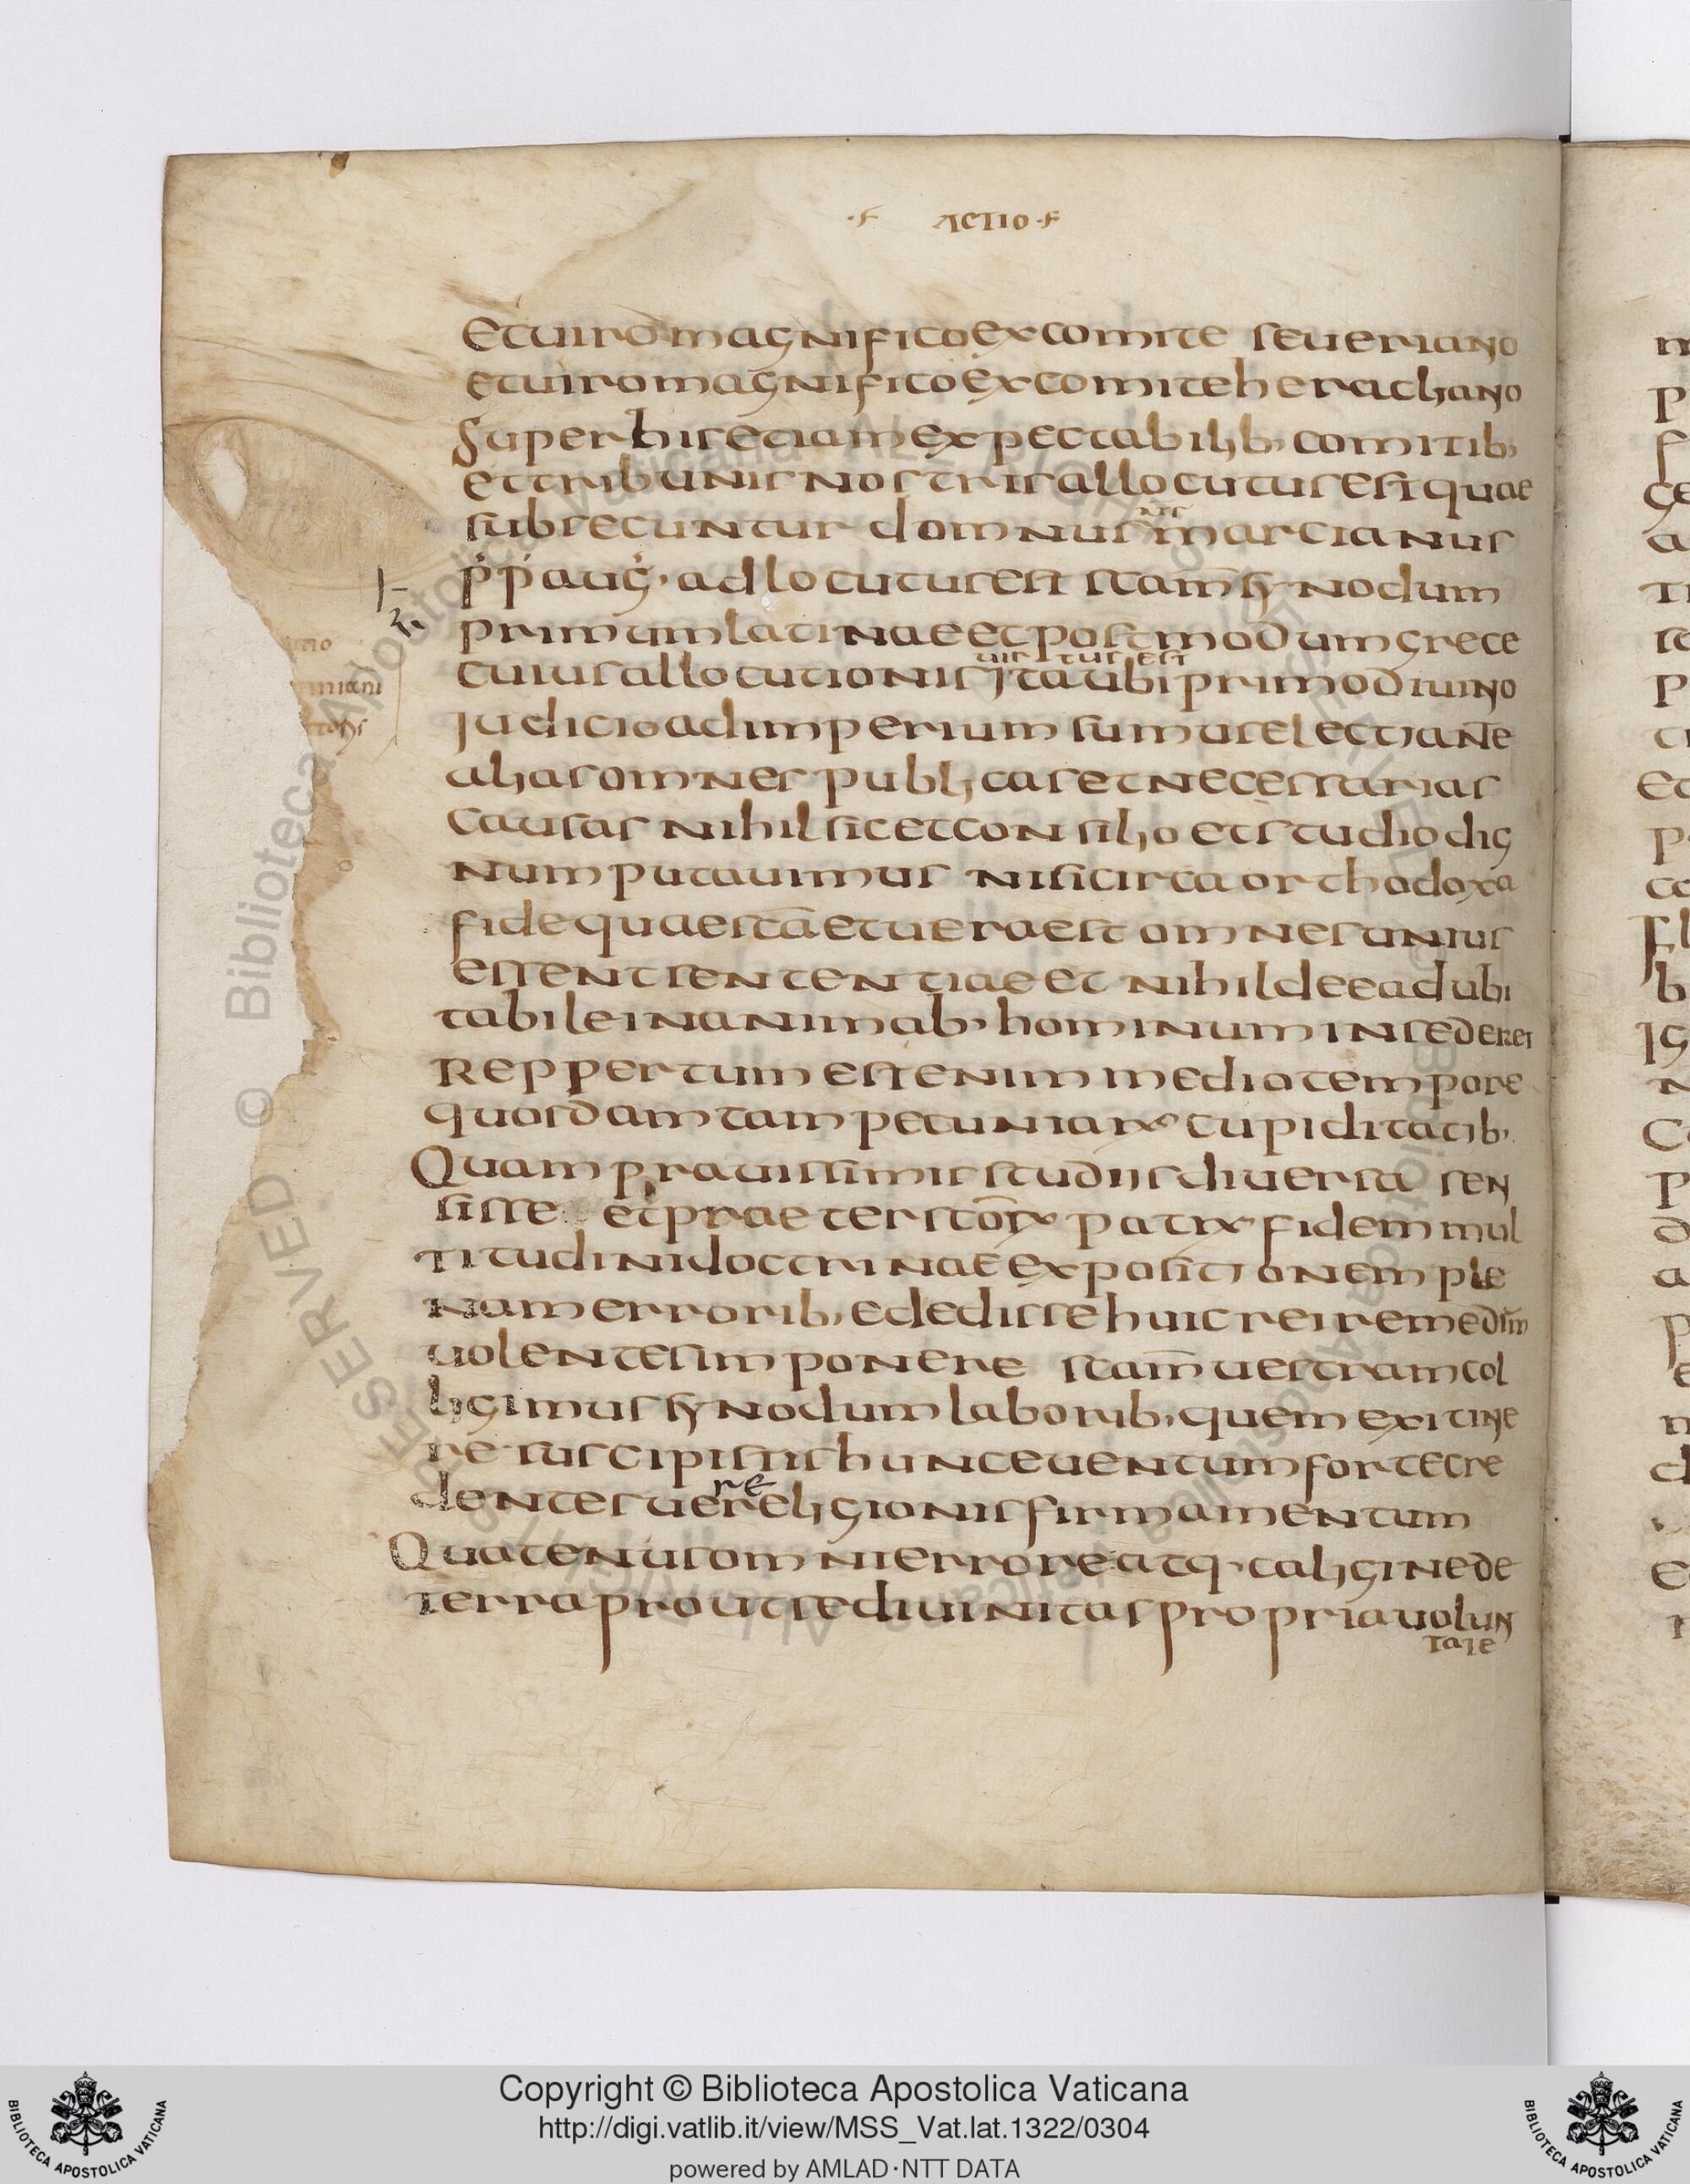 ·F· ACTIO ·F·
et uiro magnifico ex comite seueriano
et uiro magnifico ex comite heracliano
super his etiam expectabilib· comitib·
et tribunis nostris allocutus est quae
subsecuntur domnus nr̄ marcianus
p̓p̓ aug̓· adlocutus est scam̄ synodum
primum latinae et postmodum grece
uis tus est
cuius allocutionis ita ubi primo diuino
iudicio ad imperium sumus electi ante
alias omnes publicas et necessarias
causas nihil sic et consilio et studio dig
num putauimus nisi circa orthodoxa
fide quae scā et uera est omnes unius
essent sententiae et nihil de ea dubi
tabile in animab· hominum insederet
Reppertum est enim medio tempore
quosdam tam pecuniarꝝ cupiditatib·
Quam prauissimis studiis diuersa sen
sisse et praeter scōrꝝ patrꝝ fidem mul
titudini doctrinae expositionem ple
nam errorib· ededisse huic rei remedium
uolentes imponere scam̄ uestram col
ligimus synodum laborib· quem ex itine
re suscipistis hunc euentum forte cre
re
dentes uere religionis firmamentum
Quatenus omni errore atq· caligine de
terra prout se diuinitas propria uolun
tate
Copyright © Biblioteca Apostolica Vaticana
http://digi.vatlib.it/view/MSS_Vat.lat.1322/0304
powered by AMLAD·NTT DATA
BIBLIOTECA APOSTOLICA VATICANA
BIBLIOTECA APOSTOLICA VATICANA